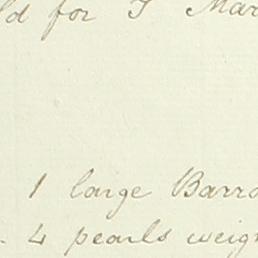 ld for T Mar
1 large Barro
4 pearls weigh